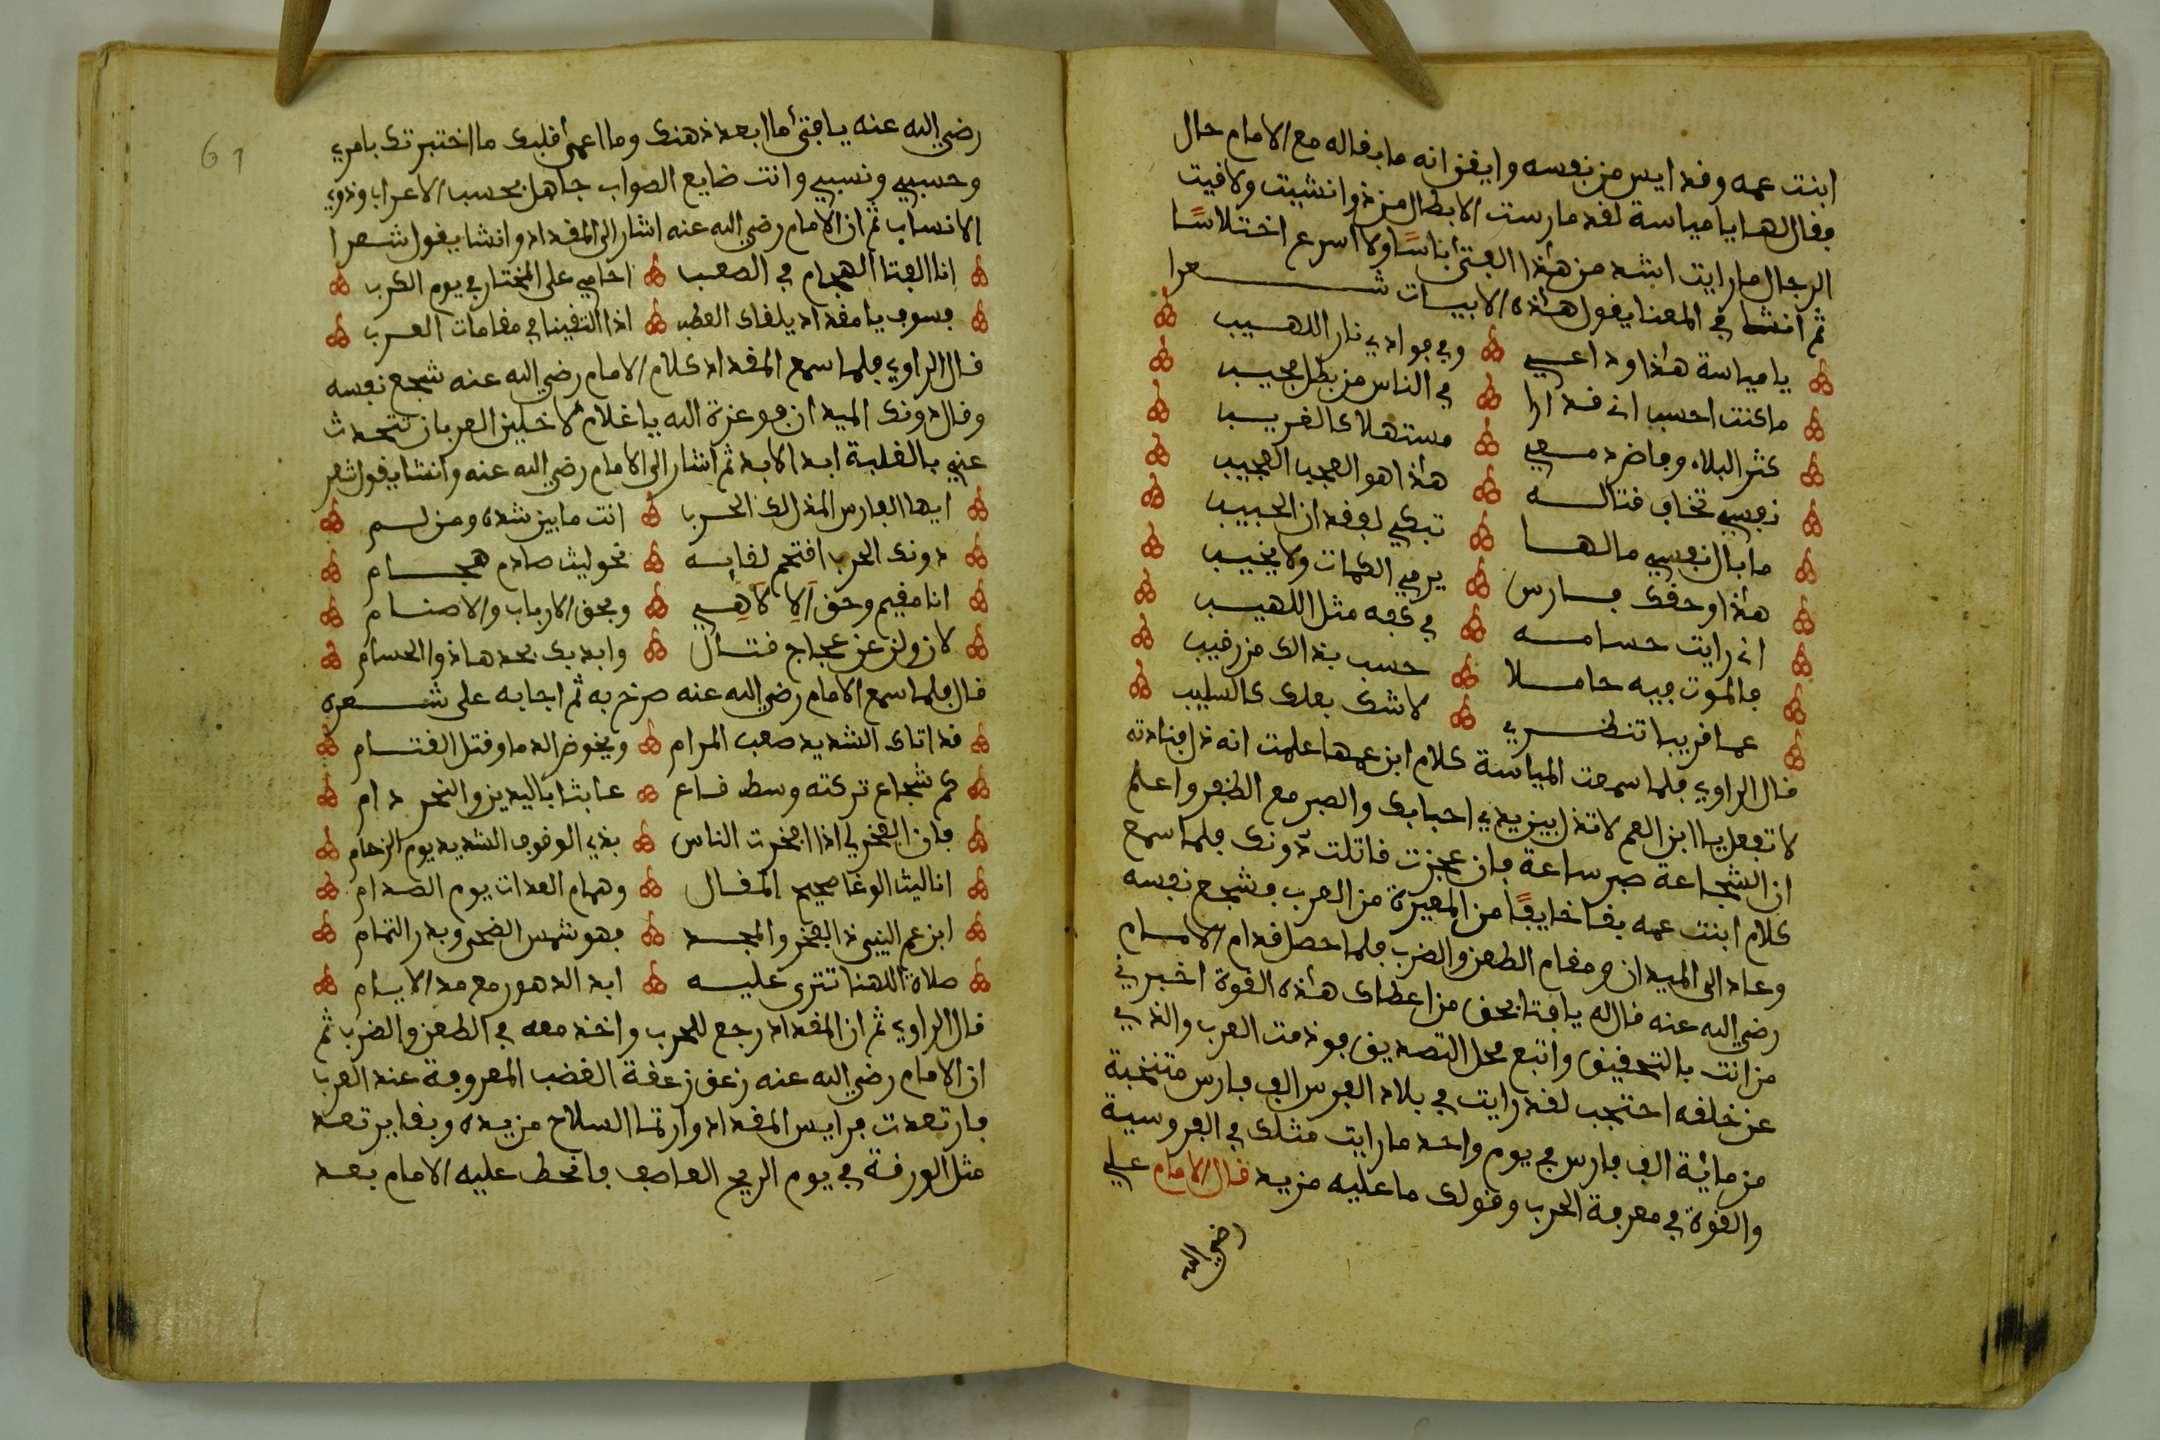 ابنت عمه وقد ايس من نفسه وايقن انه ما بقا له مع الامام حال
فقال لها يا مياسة لقد مارست الابطال منذ وانشيت ولاقيت
الرجال ما رايت اشد من هذا الفتى باسًا ولا اسرع اختلاسًا
ثم انشا في المعنا يقول هذه الابيات شعرا
يا مياسة هذا وداعي وفي فوادي نار اللهيب
ما كنت احسب اني قد ارا في الناس من بطل مجيب
كثر البلاء وما ضرد معي مستهلاك الغريب
نفسي تخاف قتاله هذا هو العجب العجيب
ما بال نفسي ما لها تبكي لفقدان الحبيب
هذا وحقك فارس يرمي الكمات ولا يخيب
اني رايت حسامه في كفه مثل اللهيب
فالموت فيه حاملا حسب بذالك من رقيب
عما قريب تنظري لا شك بعلك كالسليب
قال الراوي فلما سمعت المياسة كلام ابن عمها علمت انه ذل فنادته
لا تفعل يا ابن العم لا تذل بين يدي احبابك والصبر مع الظفر واعلم
ان الشجاعة صبر ساعة فان عجزت قاتلت دونك فلما سمع
كلام ابنت عمه بقا خايفًا من المعيرة من العرب فشجع نفسه
وعاد الى الميدان ومقام الطعن والضرب فلما حصل قدام الامام
رضي الله عنه قال له يا فتا بحق من اعطاك هذه القوة اخبرني
من انت بالتحقيق واتبع محل التصديق فوذمت العرب والذي
عن خلقه احتجب لقد رايت في بلاد الفرس الف فارس منتخبة
من ماية الف فارس في يوم واحد ما رايت مثلك في الفروسية
والقوة في معرفة الحرب وقولك ما عليه مزيد قال الامام علي
رضي الله
61
رضي الله عنه يا فتى ما ابعد ذهنك وما اعمى قلبك ما اختبرتك بامري
وحسبي ونسبي وانت ضايع الصواب جاهل بحسب الاعراب وذوي
الانساب ثم ان الامام رضي الله عنه اشار الى المقداد وانشا يقول شعرا
انا الفتا الهجام في الصعب احامي على المختار في يوم الكرب
فسوف يا مقداد يلقاك العطب اذا التقينا في مقامات العرب
قال الراوي فلما سمع المقداد كلام الامام رضي الله عنه شجع نفسه
وقال دونك الميدان فوعزة الله يا غلام لا خلين العربان تتحدث
عني بالغلبة ابد الابد ثم اشار الى الامام رضي الله عنه وانشا يقول شعر
ايها الفارس المذلك الحرب انت ما بين شده ومن لسم
دونك الحرب افتحم لقايه نحو ليث صادم هجام
انا مقيم وحق الا لاهي وبحق الارباب والاصنام
لا نزولن عن عجاج قتال وابديك بحد هاذو الحسام
قال فلما سمع الامام رضي الله عنه صرخ به ثم اجابه على شعره
قد اتاك الشديد صعب المرام ويخوض الدما وقتل القتام
كم شجاع تركته وسط قاع عابثا باليدين والنحر دام
فان الفخر لي اذا افخرت الناس بذي الوقوف الشديد يوم الزحام
انا ليث الوغا صحيح المقال وهمام العدات يوم الصدام
ابن عم النبي ذ الفخر والمجد فهو شمس الضحى وبدر التمام
صلاة اللهنا تترى عليه ابد الدهور مع مد الايام
قال الراوي ثم ان المقداد رجع للحرب واخذ معه في الطعن والضرب ثم
ان الامام رضي الله عنه زعق زعقة الغضب المعروفة عند العرب
فارتعدت فرايس المقداد وارتما السلاح من يده وبقا يرتعد
مثل الورقة في يوم الريح العاصف فانحط عليه الامام بعد